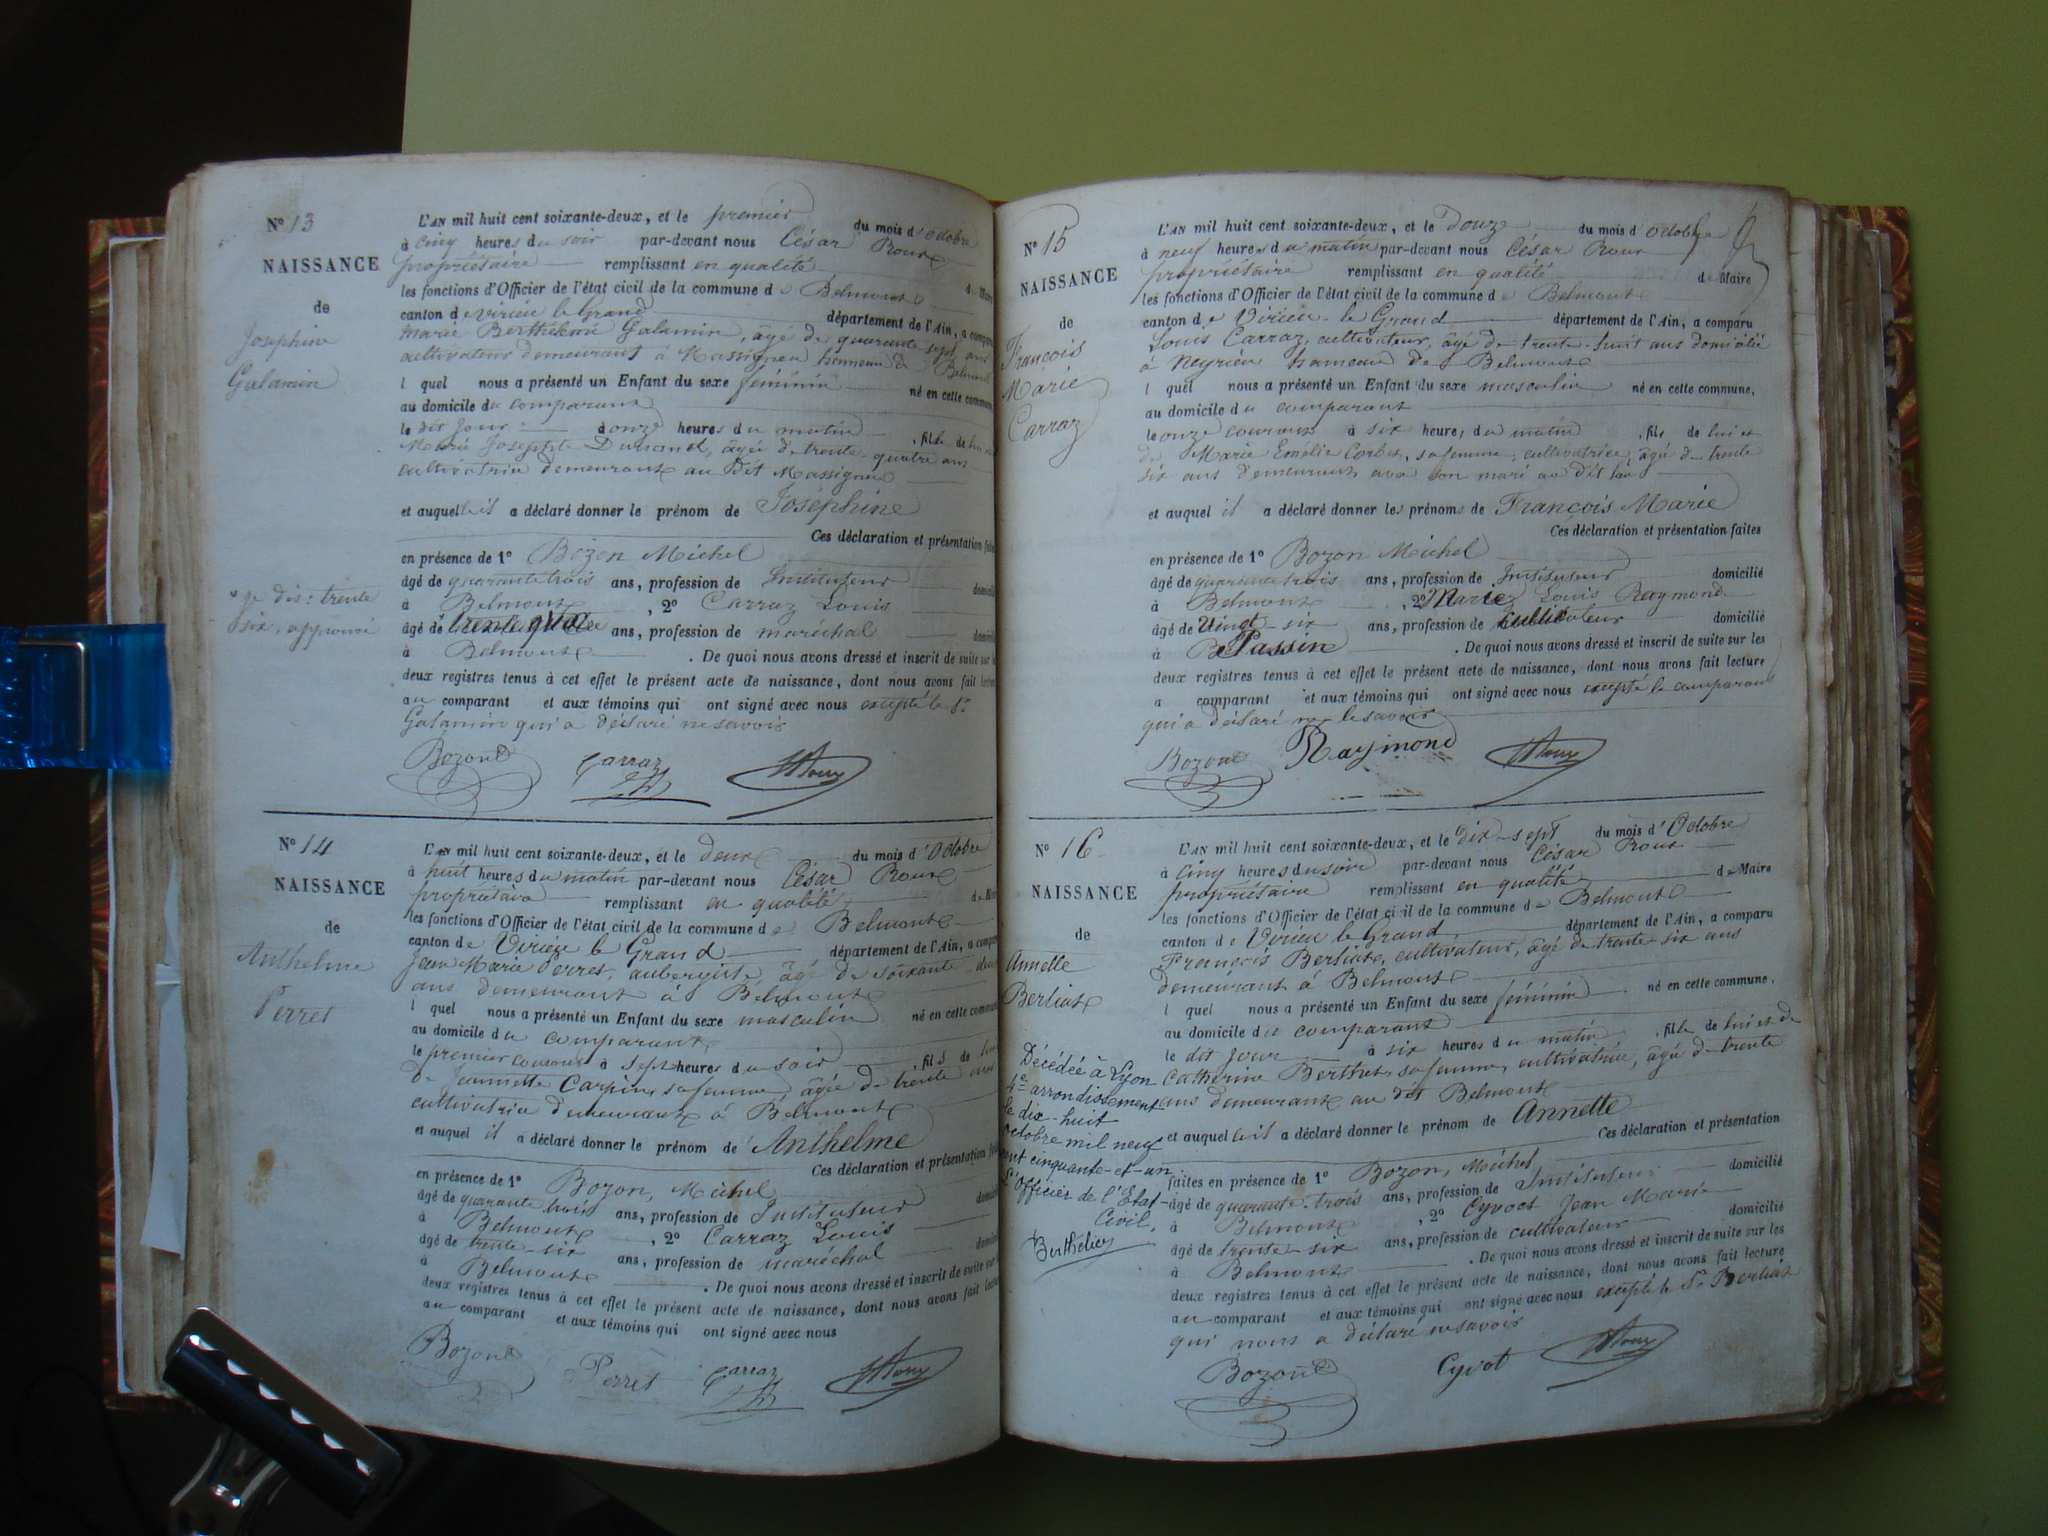 N° 13
NAISSANCE
de
Joséphine
Galamin
ge dis: trente
six, approuvé
L'AN mil huit cent soixante-deux, et le premier du mois d'Octobre
à cinq heures du soir par-devant nous César Roux
propriétaire remplissant en qualité de Maire
les fonctions d'Officier de l'état civil de la commune de Belmont
canton de Virieu le Grand département de l'Ain, a comparu
Marie Galamin, âgé de quarante sept ans
cultivateur demeurant à Massignieu hameau de Belmont
lequel nous a présenté un Enfant du sexe féminin né en cette commune
au domicile du comparant
le dit jour à onze heures du matin, fille de lui
Marie Josephte Dumond, âgée de trente quatre ans
cultivatrice demeurant au dit Massignieu
et auquel il a déclaré donner le prénom de Joséphine
Ces déclaration et présentation
en présence de 1° Bozon Michel
âgé de quarante trois ans, profession de Instituteur
à Belmont, 2° Carraz Louis
âgé de ans, profession de maréchal
à Belmont. De quoi nous avons dressé et inscrit de suite sur
deux registres tenus à cet effet le présent acte de naissance, dont nous avons fait lecture
au comparant et aux témoins qui ont signé avec nous excepté le Sr
Galamin qui a déclaré ne savoir
Bozon Carraz Roux
N° 14
NAISSANCE
de
Anthelme
Perret
L'AN mil huit cent soixante-deux, et le deux du mois d'Octobre
à huit heures du matin par-devant nous César Roux
propriétaire remplissant en qualité de Maire
les fonctions d'Officier de l'état civil de la commune de Belmont
canton de Virieu le Grand département de l'Ain, a comparu
Jean Marie Perret, aubergiste, âgé de soixante deux
ans demeurant à Belmont
lequel nous a présenté un Enfant du sexe masculin né en cette commune
au domicile du comparant
le premier courant à sept heures du soir fils de lui
de Jeannette Carpin, sa femme, âgée de trente ans
cultivatrice demeurant à Belmont
et auquel il a déclaré donner le prénom de Anthelme
Ces déclaration et présentation
en présence de 1° Bozon, Michel
âgé de quarante trois ans, profession de Instituteur
à Belmont, 2° Carraz Louis
âgé de trente-six ans, profession de maréchal
à Belmont. De quoi nous avons dressé et inscrit de suite sur
deux registres tenus à cet effet le présent acte de naissance, dont nous avons fait lecture
au comparant et aux témoins qui ont signé avec nous
Bozon Perret Carraz Roux
N° 15
NAISSANCE
de
François
Marie
Carraz
L'AN mil huit cent soixante-deux, et le Douze du mois d'Octobre
à neuf heures du matin par-devant nous César Roux
propriétaire remplissant en qualité de Maire
les fonctions d'Officier de l'état civil de la commune de Belmont
canton de Virieu-le Grand département de l'Ain, a comparu
Louis Carraz, cultivateur, âgé de trente-huit ans domicilié
à Neyrieu hameau de Belmont
lequel nous a présenté un Enfant du sexe masculin né en cette commune,
au domicile du comparant
le onze courant à six heures du matin, fils de lui et
de Marie Emélie Corbet, sa femme, cultivatrice, âgé de trente
six ans demeurant avec son mari au dit lieu
et auquel il a déclaré donner les prénoms de François Marie
Ces déclaration et présentation faites
en présence de 1° Bozon Michel
âgé de quarante trois ans, profession de Instituteur domicilié
à Belmont, 2° Louis Raymond
âgé de vingt-six ans, profession de cultivateur domicilié
à Passin. De quoi nous avons dressé et inscrit de suite sur les
deux registres tenus à cet effet le présent acte de naissance, dont nous avons fait lecture
a comparant et aux témoins qui ont signé avec nous excepté le comparant
qui a déclaré ne le savoir
Bozon Raymond Roux
N° 16
NAISSANCE
de
Annette
Berliat
Décédée à Lyon
4e arrondissement
le dix-huit
octobre mil neuf
cent cinquante-et-un
L'officier de l'Etat
Civil,
L'AN mil huit cent soixante-deux, et le dix-sept du mois d'Octobre
à cinq heures du soir par-devant nous César Roux
propriétaire remplissant en qualité de Maire
les fonctions d'Officier de l'état civil de la commune de Belmont
canton de Virieu le Grand, département de l'Ain, a comparu
François Berliat, cultivateur, âgé de trente six ans
demeurant à Belmont
lequel nous a présenté un Enfant du sexe féminin né en cette commune,
au domicile du comparant
le dit jour à six heures du matin, fille de lui et de
Catherine Berthet, sa femme, cultivatrice, âgée de trente
ans demeurant au dit Belmont
et auquel il a déclaré donner le prénom de Annette
Ces déclaration et présentation
faites en présence de 1° Bozon, Michel
âgé de quarante-trois ans, profession de Instituteur domicilié
à Belmont, 2° Cyvoct Jean Marie
âgé de trente-six ans, profession de cultivateur domicilié
à Belmont. De quoi nous avons dressé et inscrit de suite sur les
deux registres tenus à cet effet le présent acte de naissance, dont nous avons fait lecture
au comparant et aux témoins qui ont signé avec nous excepté le Sr Berliat
qui nous a déclaré ne savoir
Bozon Cyvot Roux